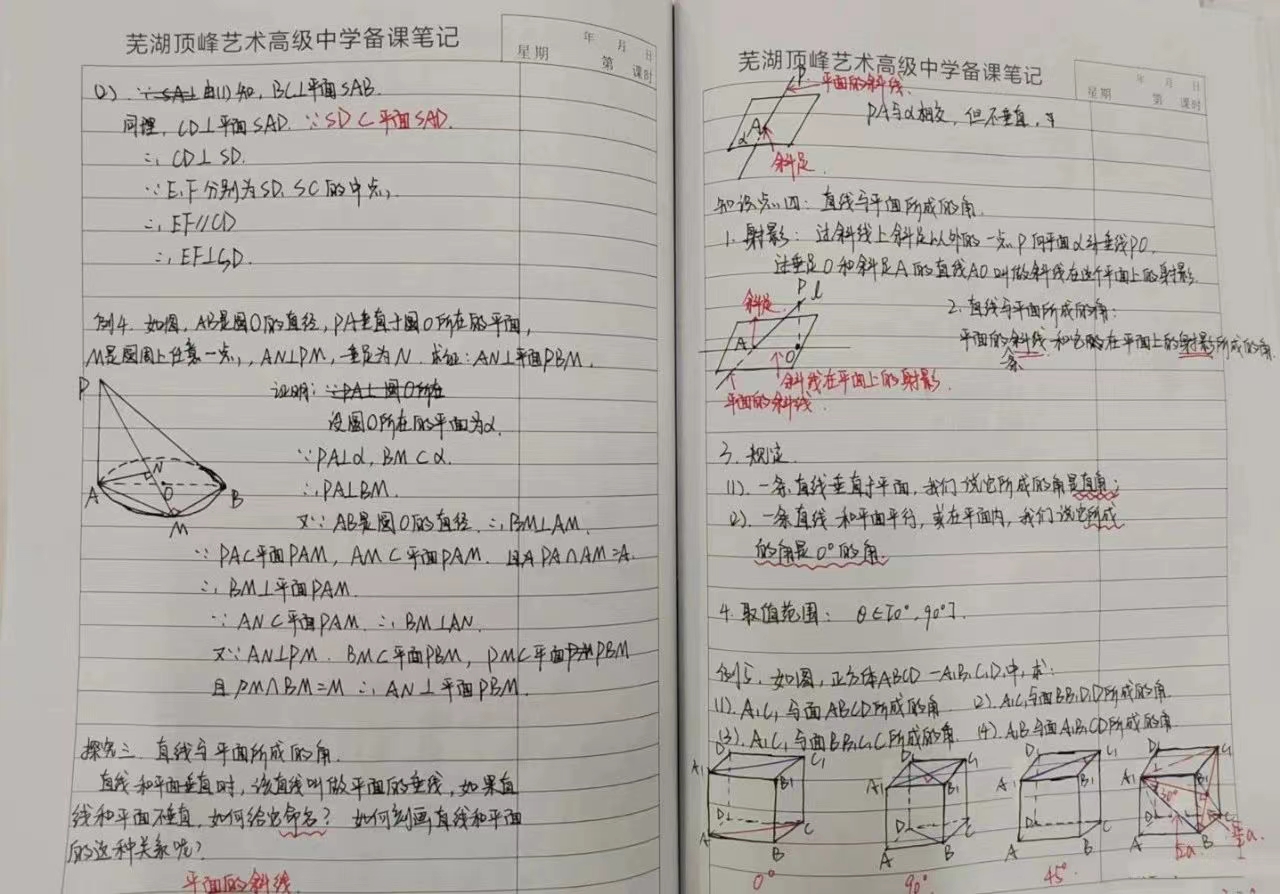 芜湖顶峰艺术高级中学备课笔记
年 月 日
星期 第 课时
(2). ∵SA⊥由(1)知, BC⊥平面SAB.
同理, CD⊥平面SAD. ∵SD⊂平面SAD.
∴CD⊥SD.
∵E,F分别为SD,SC的中点,
∴EF//CD
∴EF⊥SD.
例4. 如图, AB是圆O的直径, PA垂直于圆O所在的平面,
M是圆周上任意一点, AN⊥PM, 垂足为N. 求证: AN⊥平面PBM.
P
A
N
O
B
M
证明: ∵PA⊥圆O所在
设圆O所在的平面为α.
∵PA⊥α, BM⊂α.
∴PA⊥BM.
又∵AB是圆O的直径. ∴BM⊥AM.
∵PA⊂平面PAM, AM⊂平面PAM. 且PA∩AM=A.
∴BM⊥平面PAM.
∵AN⊂平面PAM. ∴BM⊥AN.
又∵AN⊥PM. BM⊂平面PBM, PM⊂平面PBM
且PM∩BM=M ∴AN⊥平面PBM.
探究三. 直线与平面所成的角.
直线和平面垂直时, 该直线叫做平面的垂线, 如果直
线和平面不垂直, 如何给它命名? 如何刻画直线和平面
的这种关系呢?
平面的斜线.
芜湖顶峰艺术高级中学备课笔记
年 月 日
星期 第 课时
P
平面的斜线.
A
α
斜足.
PA与α相交, 但不垂直,
知识点四: 直线与平面所成的角.
1. 射影: 过斜线上斜足以外的一点P向平面α引垂线PO.
过垂足O和斜足A的直线AO叫做斜线在这个平面上的射影.
斜足.
P l
A
O
斜线在平面上的射影.
平面的斜线.
2. 直线与平面所成的角:
平面的一条斜线和它在平面上的射影所成的角.
3. 规定.
(1). 一条直线垂直于平面, 我们说它所成的角是直角;
(2). 一条直线和平面平行, 或在平面内, 我们说它所成
的角是0°的角.
4. 取值范围: θ∈[0°,90°].
例5. 如图, 正方体ABCD-A₁B₁C₁D₁中, 求:
(1). A₁C₁与面ABCD所成的角. (2). A₁C₁与面BB₁D₁D所成的角.
(3). A₁C₁与面BB₁C₁C所成的角. (4). A₁B与面A₁B₁CD所成的角.
D₁ C₁ A₁ B₁ D C A B
0°
D₁ C₁ A₁ B₁ D C A B
90°
D₁ C₁ A₁ B₁ D C A B
45°
D₁ C₁ A₁ B₁ D C A B
30°
√2a